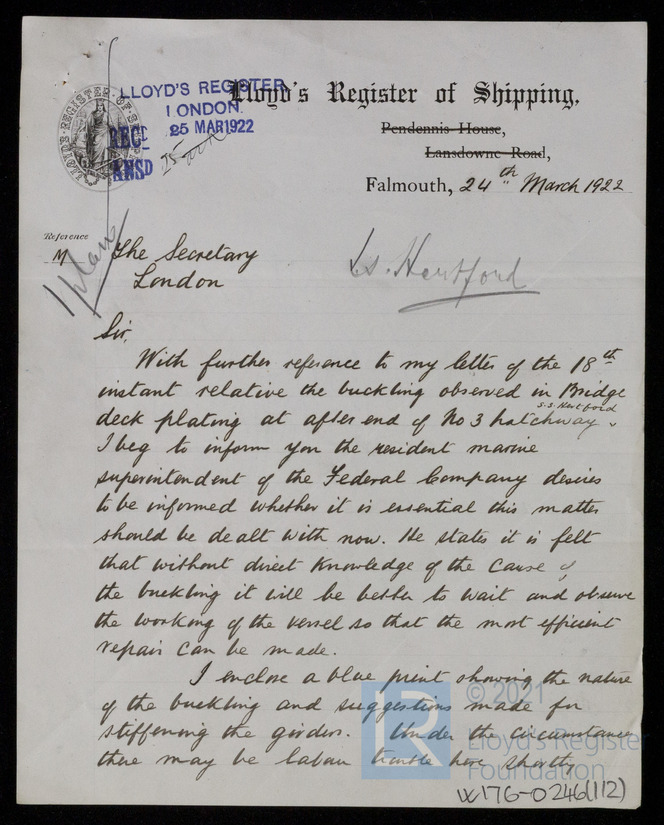 LLOYD'S REGISTER
LONDON
25 MAR 1922
RECD
ANSD
LLOYD'S · REGISTER · OF · SHIPPING
Lloyd's Register of Shipping,
Pendennis House,
Lansdowne Road,
Falmouth, 24th March 1922
Reference
M
1 plan
The Secretary
London
s.s. Hertford
Sir,
With further reference to my letter of the 18th
instant relative the buckling observed in Bridge
s.s. Hertford
deck plating at after end of No 3 hatchway.
I beg to inform you the resident marine
superintendent of the Federal Company desires
to be informed whether it is essential this matter
should be dealt with now. He states it is felt
that without direct knowledge of the cause of
the buckling it will be better to wait and observe
the working of the vessel so that the most efficient
repair can be made.
I enclose a blue print showing the nature
of the buckling and suggestions made for
stiffening the girders. Under the circumstances
there may be labour trouble here shortly
© 2021
Lloyd's Register
Foundation
LR
W176-0246(1/2)